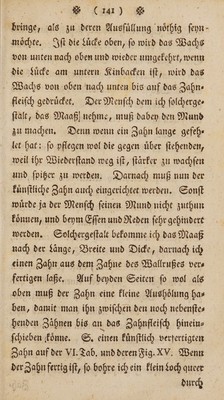 ❋ ( 141 ) ❋
bringe, als zu deren Ausfüllung nöthig seyn-
möchte. Ist die Lücke oben, so wird das Wachs
von unten nach oben und wieder umgekehrt, wenn
die Lücke am untern Kinbacken ist, wird das
Wachs von oben nach unten bis auf das Zahn-
fleisch gedrückt. Der Mensch dem ich solcherge-
stalt, das Maaß nehme, muß dabey den Mund
zu machen. Denn wenn ein Zahn lange gefeh-
let hat: so pflegen wol die gegen über stehenden,
weil ihr Wiederstand weg ist, stärker zu wachsen
und spitzer zu werden. Darnach muß nun der
künstliche Zahn auch eingerichtet werden. Sonst
würde ja der Mensch seinen Mund nicht zuthun
können, und beym Essen und Reden sehr gehindert
werden. Solchergestalt bekomme ich das Maaß
nach der Länge, Breite und Dicke, darnach ich
einen Zahn aus dem Zahne des Wallrußes ver-
fertigen lasse. Auf beyden Seiten so wol als
oben muß der Zahn eine kleine Aushölung ha-
ben, damit man ihn zwischen den noch nebenste-
henden Zähnen bis an das Zahnfleisch hinein-
schieben könne. S. einen künstlich verfertigten
Zahn auf der VI. Tab. und deren Fig. XV. Wenn
der Zahn fertig ist, so bohre ich ein klein Loch queer
durch